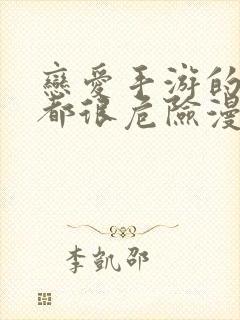 戀愛手游的
都很危險漫
李凱邵